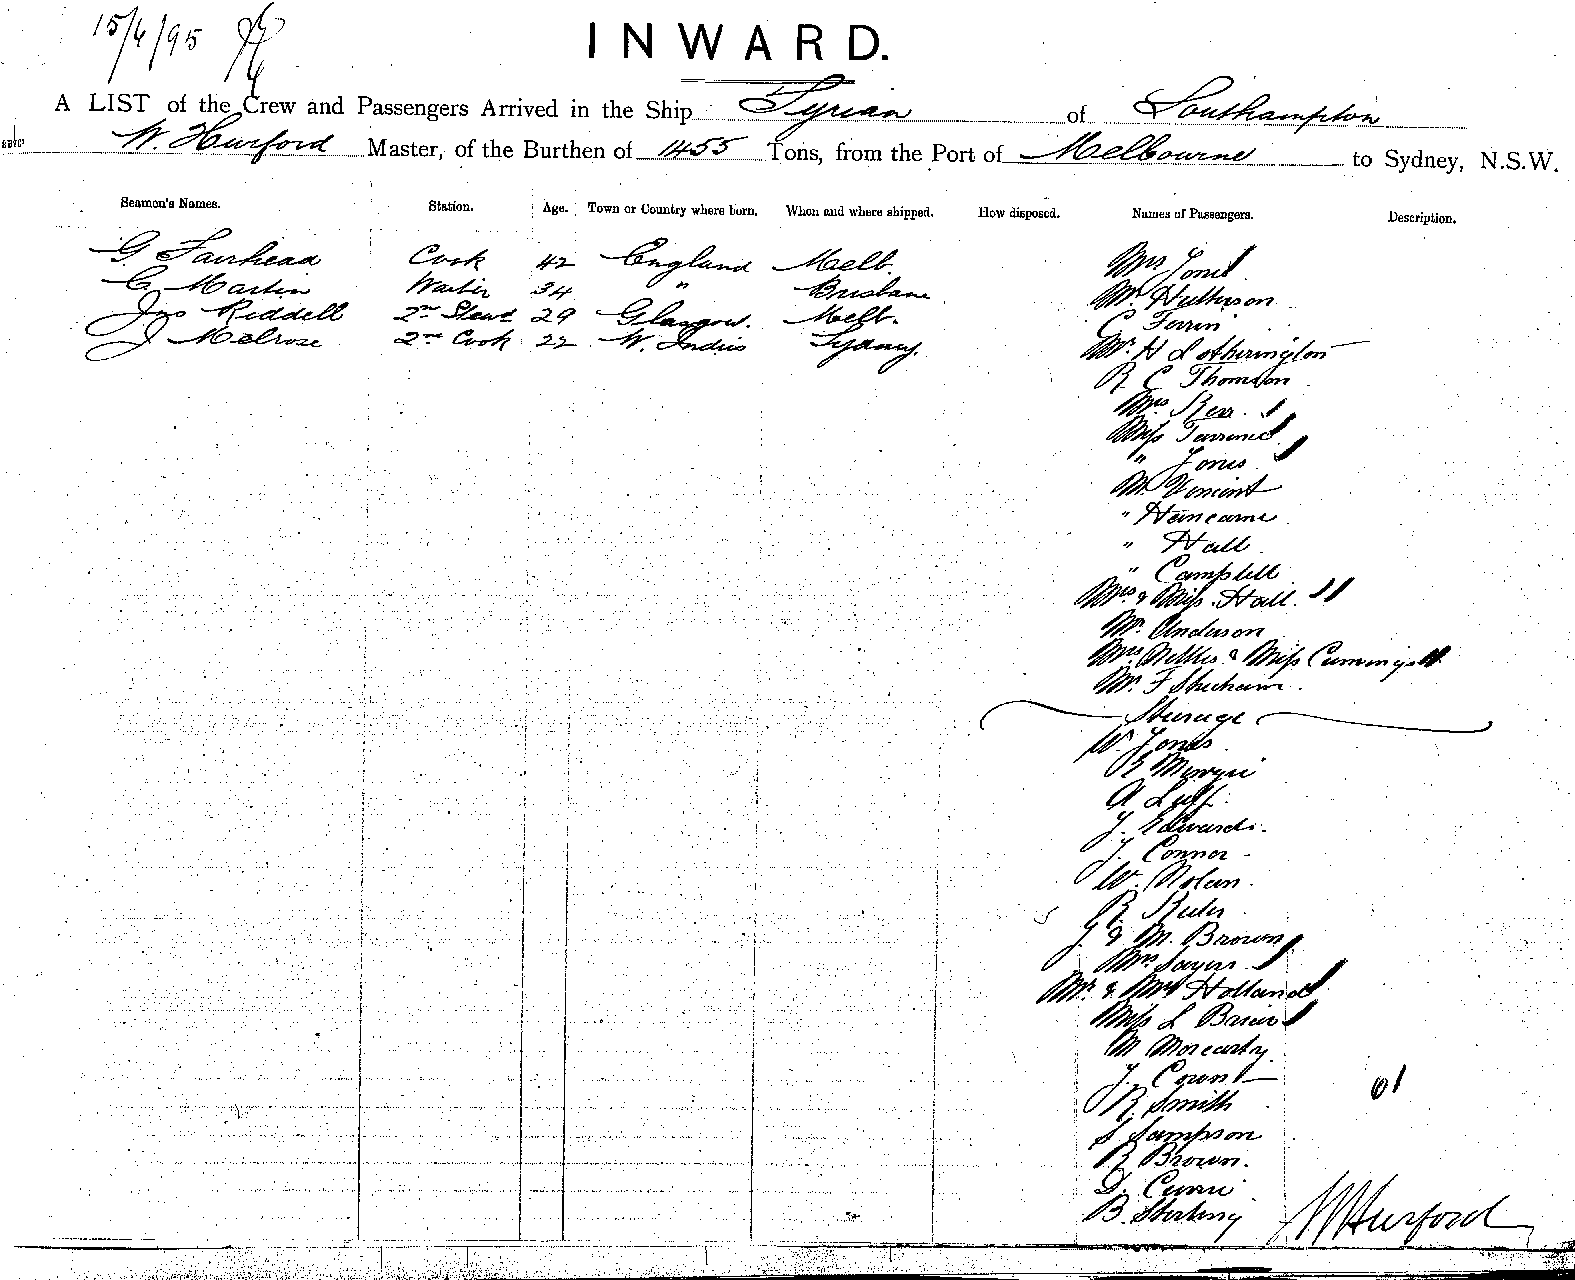 15/4/95
INWARD.
A LIST of the Crew and Passengers Arrived in the Ship Tyrian of Southampton
W. Hurford Master, of the Burthen of 1455 Tons, from the Port of Melbourne to Sydney, N.S.W.
Seamen's Names. Station. Age. Town or Country where born. When and where shipped. How disposed. Names of Passengers. Description.
G. Fairhead Cook 42 England Melb. Mrs Jones
C. Martin Waiter 34 " Brisbane Mr
Jas Riddell 2nd Stewd 29 Glasgow. Melb. C Ferrin
J Melrose 2nd Cook 22 W. Indies Sydney. Mr. H Lotherington
R C Thomson
Mrs Kerr
Miss
" Jones
Mr Vincent
"
" Hall
" Campbell
Mrs & Miss Hall.
Mr. Anderson
Mrs & Miss Cummings
Mr. F
Steerage
W. Jones
A
J. Edwards.
J. Connor
W. Nolan.
R.
J. & M. Brown
Mrs Sayers
Mr. & Mrs Holland
Miss L
M Moreartry
J.
R. Smith
S Sampson
R Brown.
D. Currie
B. Sterling
61
W Hurford